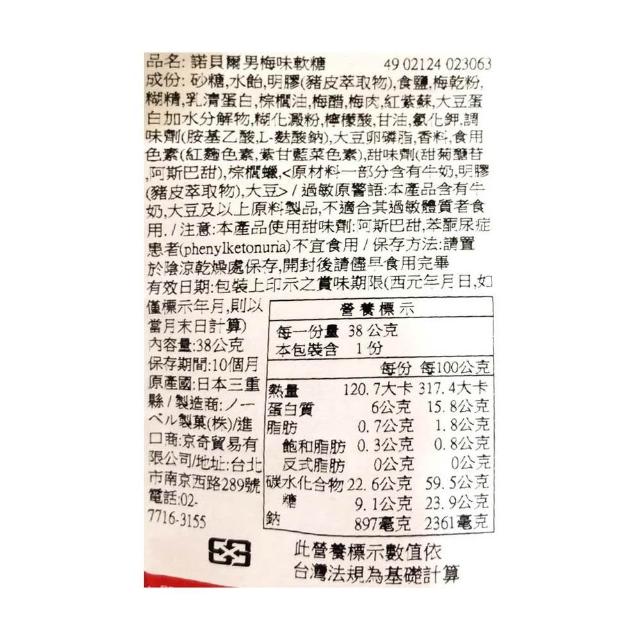 品名: 諾貝爾男梅味軟糖 49 02124 023063
成份: 砂糖,水飴,明膠(豬皮萃取物),食鹽,梅乾粉,
糊精,乳清蛋白,棕櫚油,梅醋,梅肉,紅紫蘇,大豆蛋
白加水分解物,糊化澱粉,檸檬酸,甘油,氯化鉀,調
味劑(胺基乙酸,L-麩酸鈉),大豆卵磷脂,香料,食用
色素(紅麴色素,紫甘藍菜色素),甜味劑(甜菊醣苷
,阿斯巴甜),棕櫚蠟,<原材料一部分含有牛奶,明膠
(豬皮萃取物),大豆> / 過敏原警語:本產品含有牛
奶,大豆及以上原料製品,不適合其過敏體質者食
用. / 注意:本產品使用甜味劑:阿斯巴甜,苯酮尿症
患者(phenylketonuria)不宜食用 / 保存方法:請置
於陰涼乾燥處保存,開封後請儘早食用完畢
有效日期:包裝上印示之賞味期限(西元年月日,如
僅標示年月,則以
當月末日計算)
內容量:38公克
保存期間:10個月
原產國:日本三重
縣 / 製造商:ノー
ベル製菓(株)/進
口商:京奇貿易有
限公司/地址:台北
市南京西路289號
電話:02-
7716-3155
營養標示
每一份量 38 公克
本包裝含 1 份
每份 每100公克
熱量 120.7大卡 317.4大卡
蛋白質 6公克 15.8公克
脂肪 0.7公克 1.8公克
飽和脂肪 0.3公克 0.8公克
反式脂肪 0公克 0公克
碳水化合物 22.6公克 59.5公克
糖 9.1公克 23.9公克
鈉 897毫克 2361毫克
此營養標示數值依
台灣法規為基礎計算